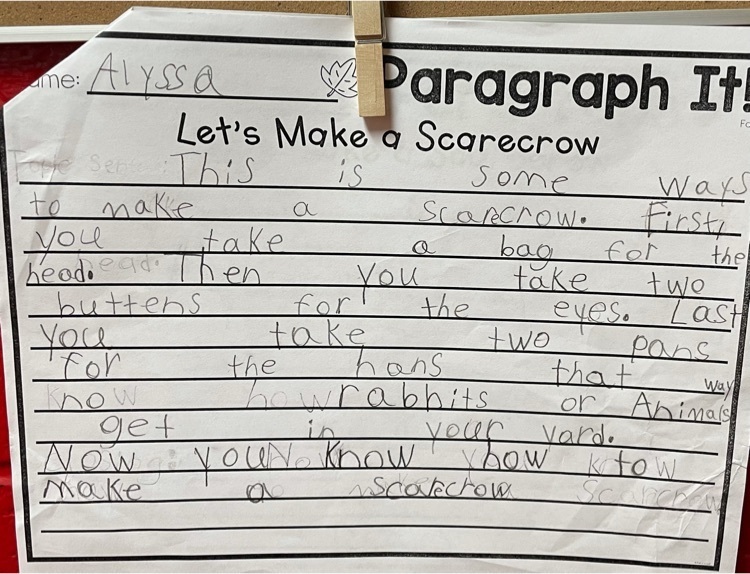 ame: Alyssa
Paragraph It!
Let's Make a Scarecrow
This is some ways
to make a scarecrow. First,
you take a bag for the
head. Then you take two
buttens for the eyes. Last
you take two pans
for the hans that way
know rabbits or Animals
get in your yard.
Now you know how tow
make a scarecrow